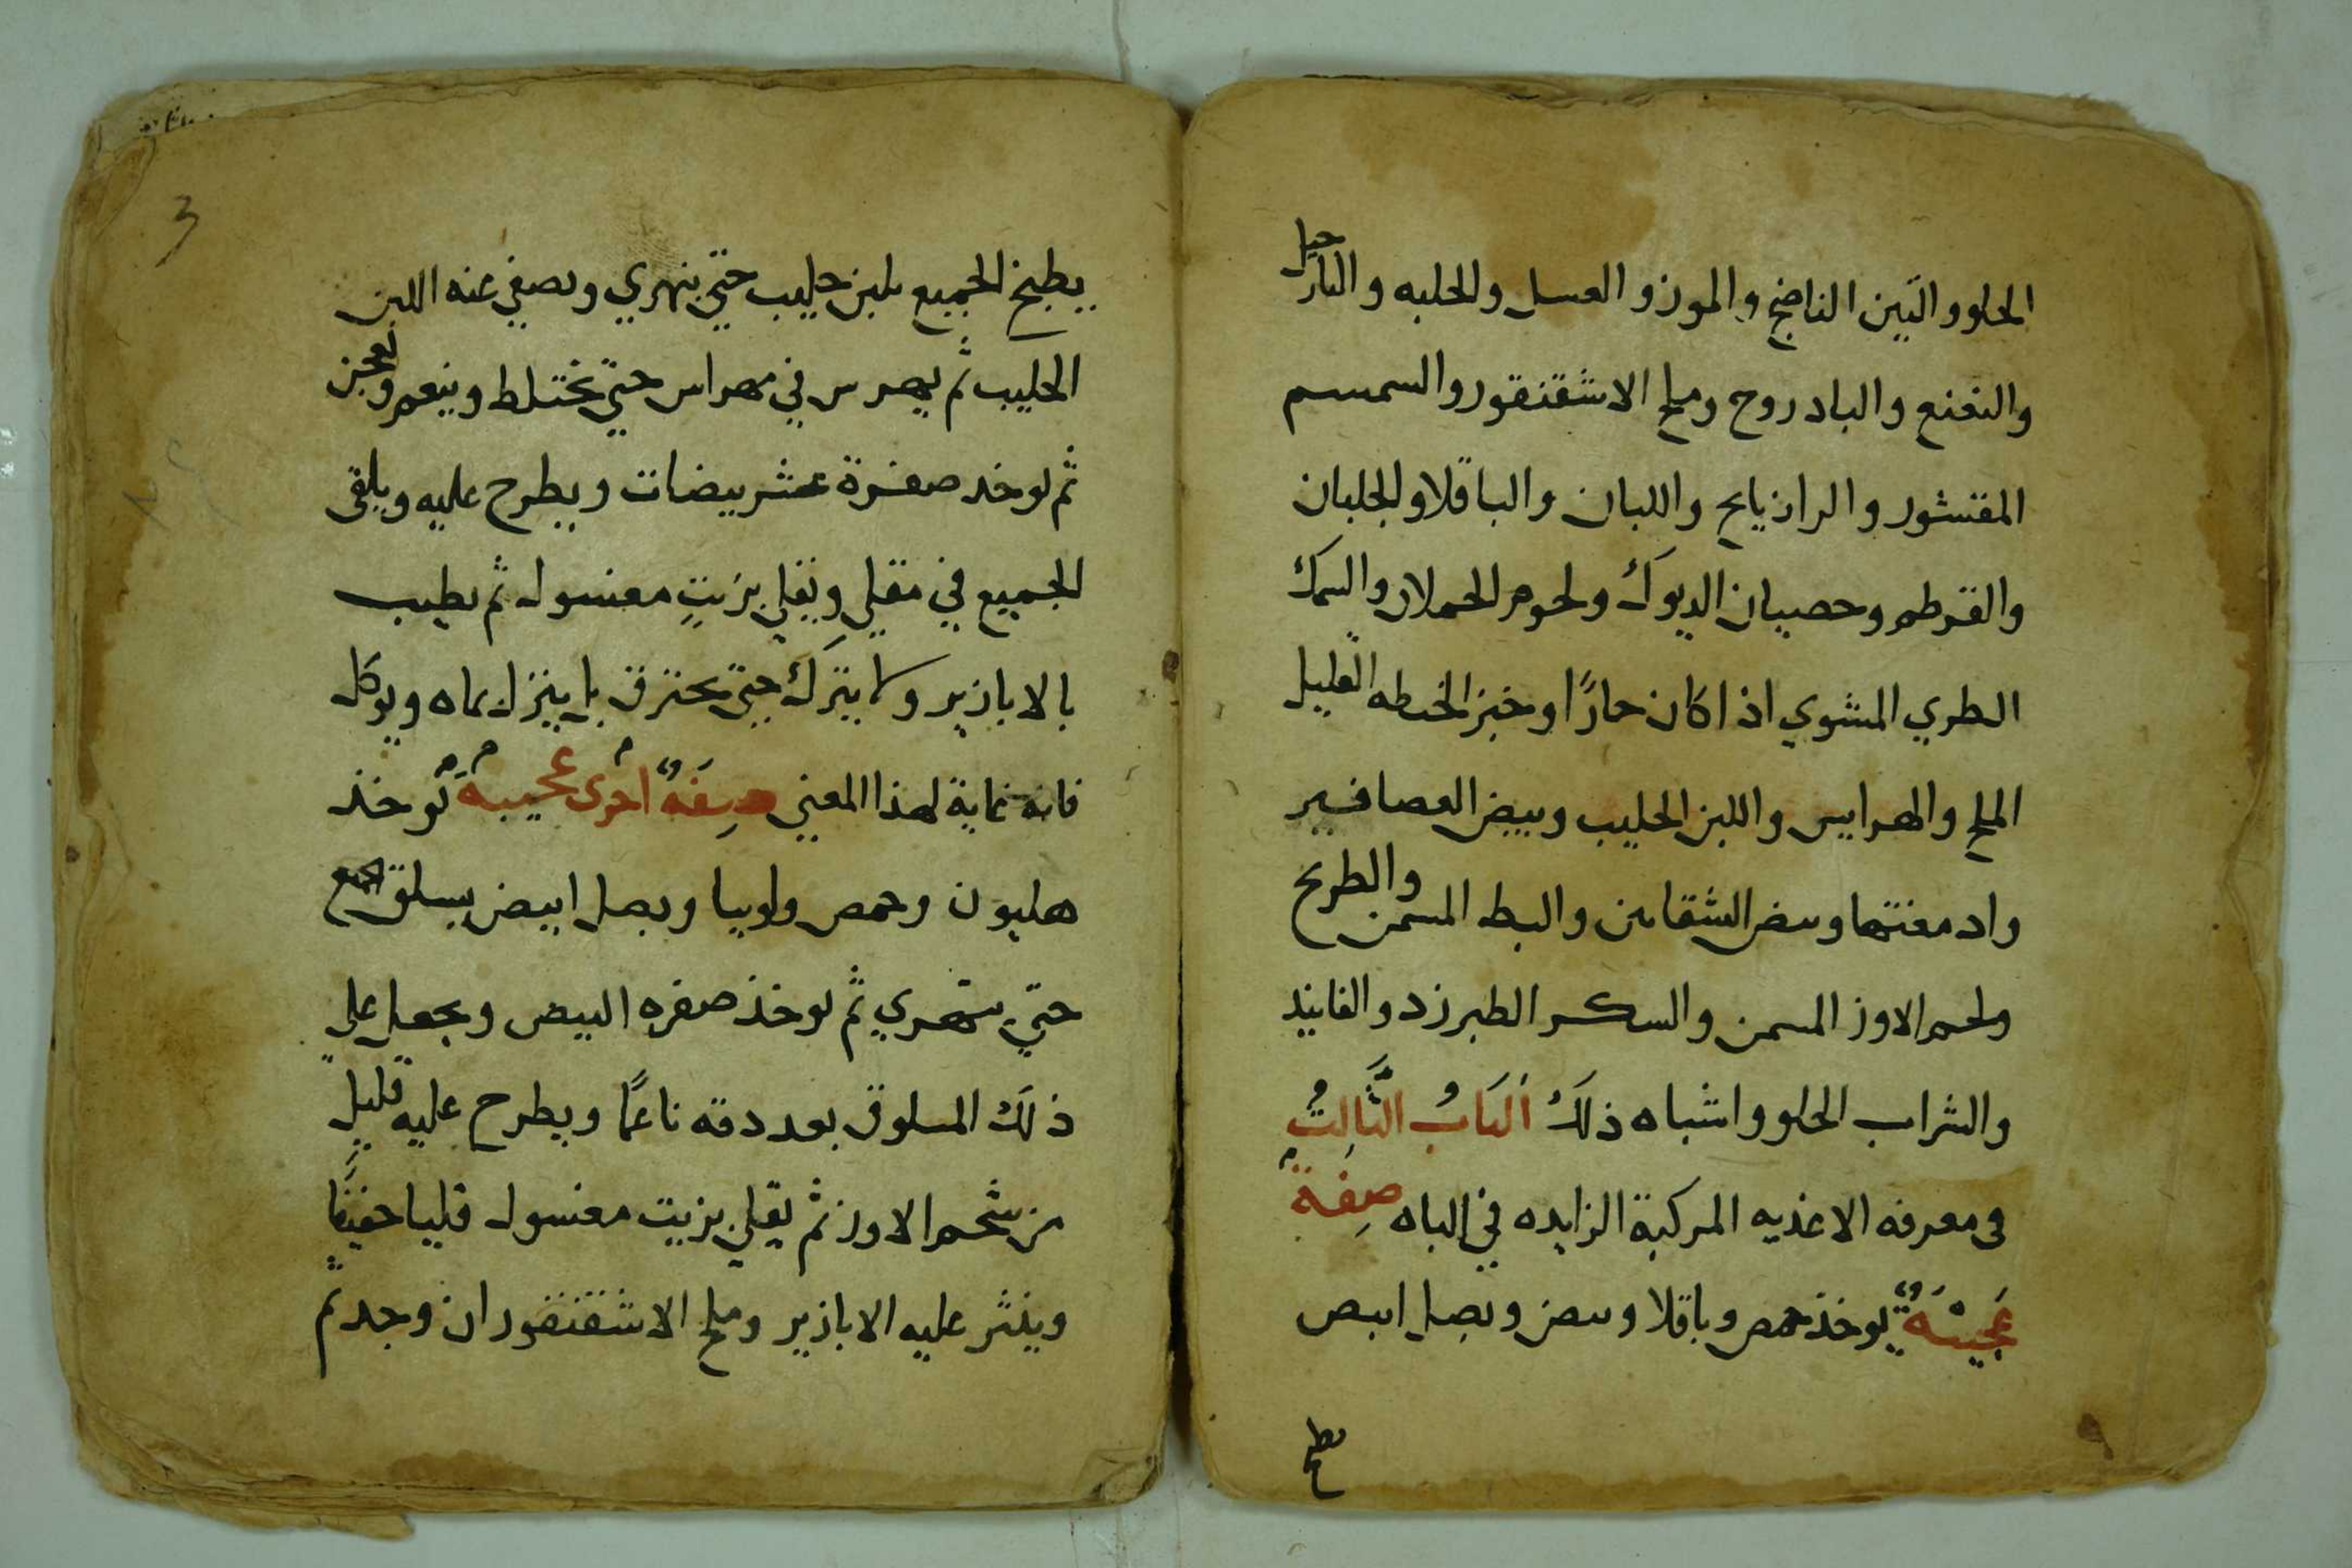 الحلو والتين الناضج والموز والعسل والحلبه والنارجيل
والنعنع والبادروج وملح الاشقنقور والسمسم
المقشور والرازيانج واللبان والباقلا والجلبان
والقرطم وخصيان الديوك ولحوم الحملان والسمك
الطري المشوي اذا كان حارًا وخبز الحنطه القليل
الملح والهرايس واللبن الحليب وبيض العصافير
وادمغتها وبيض الشقانين والبط المسمن والطريح
ولحم الاوز المسمن والسكر الطبرزد والفانيد
والشراب الحلو واشباه ذلك اَلبَابُ الثَّالِثُ
في معرفه الاغذيه المركبة الزايده في الباه صِفة
عَجيبَةٌ يوخذ حمص وباقلا وبيض وبصل ابيض
يطبخ
3
يطبخ الجميع بلبن حليب حتي ينهري ويصفي عنه اللبن
الحليب ثم يهرس في مهراس حتي يختلط وينعم ويعجن
ثم يوخد صفرة عشر بيضات ويطرح عليه ويلقى
الجميع في مقلي ويقلي بزيتٍ مغسول ثم يطيب
بالابازير ولا يترك حتي يحترق بل ينزل بماه ويوكل
فانه غاية لهذا المعني صِفَةٌ اخرى عجيبةٌ يُوخذ
هليون وحمص ولوبيا وبصل ابيض يسلق الجميع
حتي يتهري ثم يوخذ صفره البيض ويجعل علي
ذلك المسلوق بعد دقه ناعمًا ويطرح عليه قليل
من شحم الاوز ثم يقلي بزيت مغسول قليا خفيفًا
وينثر عليه الابازير وملح الاشقنقور ان وجد ثم